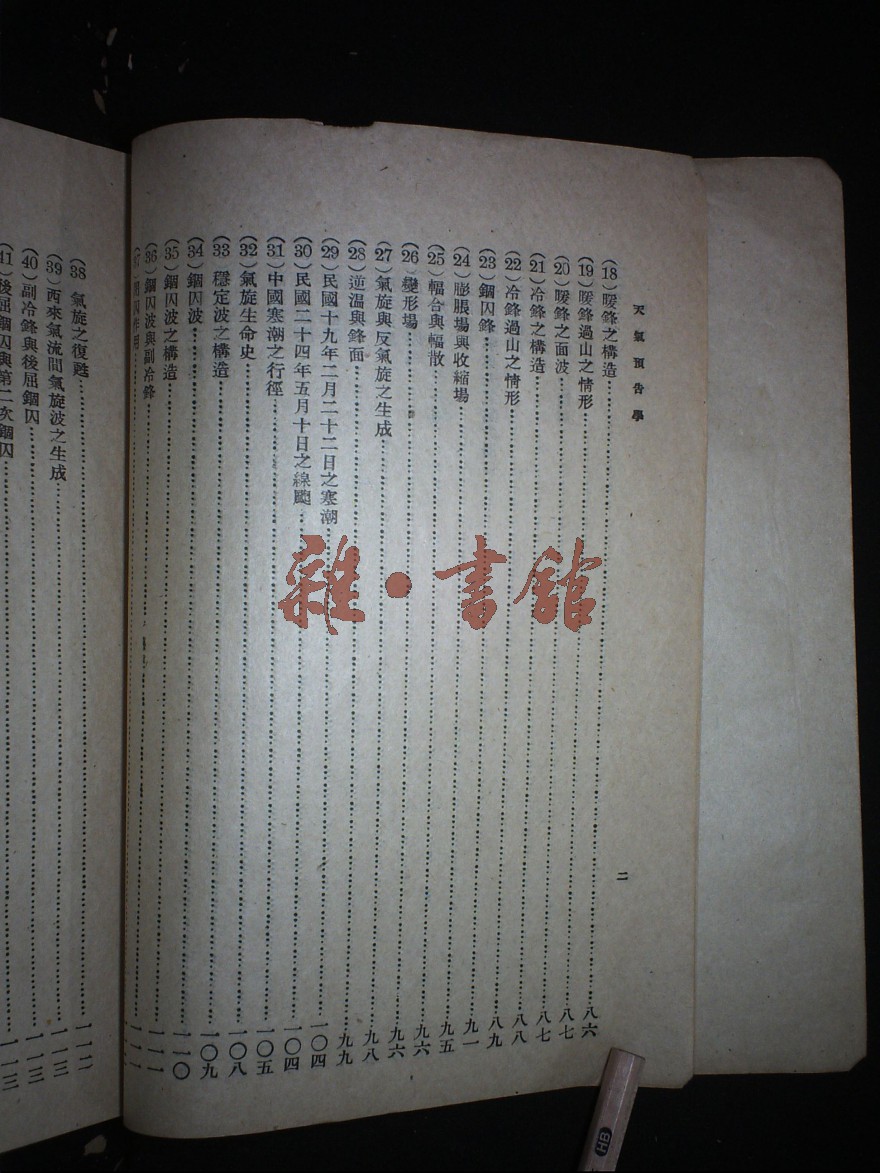 天氣預告學
二
(18) 暖鋒之構造……八六
(19) 暖鋒過山之情形……八七
(20) 暖鋒之面波……八七
(21) 冷鋒之構造……八八
(22) 冷鋒過山之情形……八八
(23) 錮囚鋒……八九
(24) 膨脹場與收縮場……九一
(25) 幅合與幅散……九五
(26) 變形場……九六
(27) 氣旋與反氣旋之生成……九八
(28) 逆溫與鋒面……九九
(29) 民國十九年二月二十二日之寒潮……一〇四
(30) 民國二十四年五月十日之線颮……一〇四
(31) 中國寒潮之行徑……一〇五
(32) 氣旋生命史……一〇八
(33) 穩定波之構造……一〇九
(34) 錮囚波……一一〇
(35) 錮囚波之構造
(36) 錮囚波與副冷鋒
(38 氣旋之復甦……一一二
(39) 西來氣流間氣旋波之生成……一一三
(40) 副冷鋒與後屈錮囚……一一三
41) 後屈錮囚與第二次錮囚……一一三
雜·書館
HB